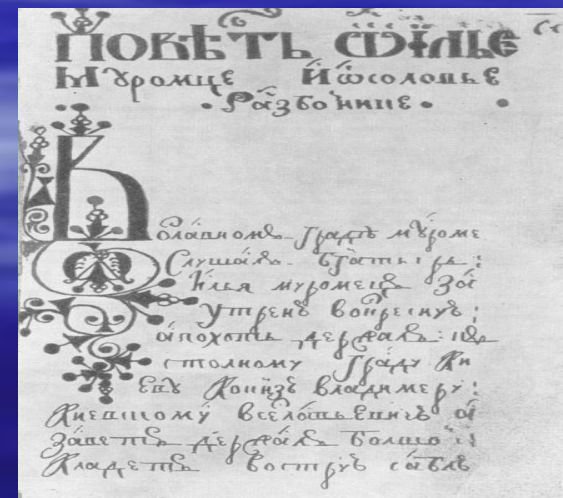 ПОВѢТЬ ѾИЛЬЕ
Мꙋромце Иѡсоловье
Разбойнице
Вславномъ градѣ мꙋроме
Слушалъ бгатырь:
Илья муромецъ за
утренѣ воскреснꙋ:
апохоть держалъ: къ
столному граду Ки
евꙋ Кокнзю владимеру:
Киевскому всеславьевичю а
заветъ держалъ болшой
Кладетъ вострꙋ саблю